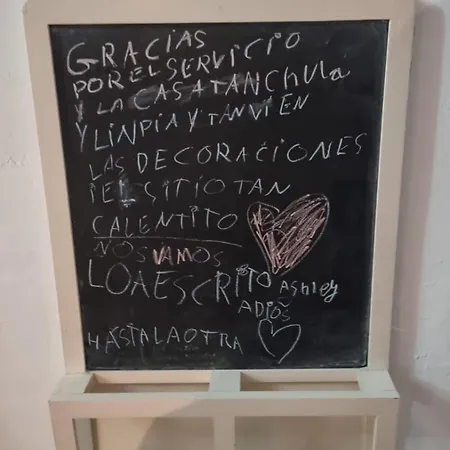 GRACIAS
POR EL SERVICIO
Y LA CASA TAN Chula
Y LINPIA Y TANVIEN
LAS DECORACIONES
IEL SITIO TAN
CALENTITO
NOS VAMOS
LO A ESCRITO Ashley
ADIOS
HASTA LA OTRA